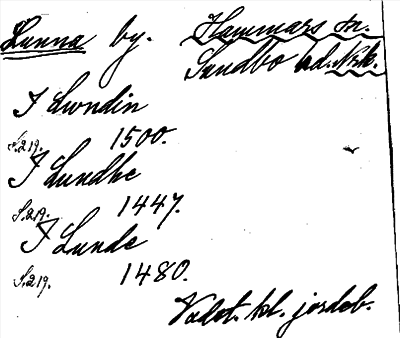 Lunna by. Hammars sn.
Sundbo hd. Nrk.
I Lwndin
S. 219. 1500.
I Lundhe
S. 219. 1447.
I Lunde
S. 219. 1480.
Vadst. kl. jordeb.